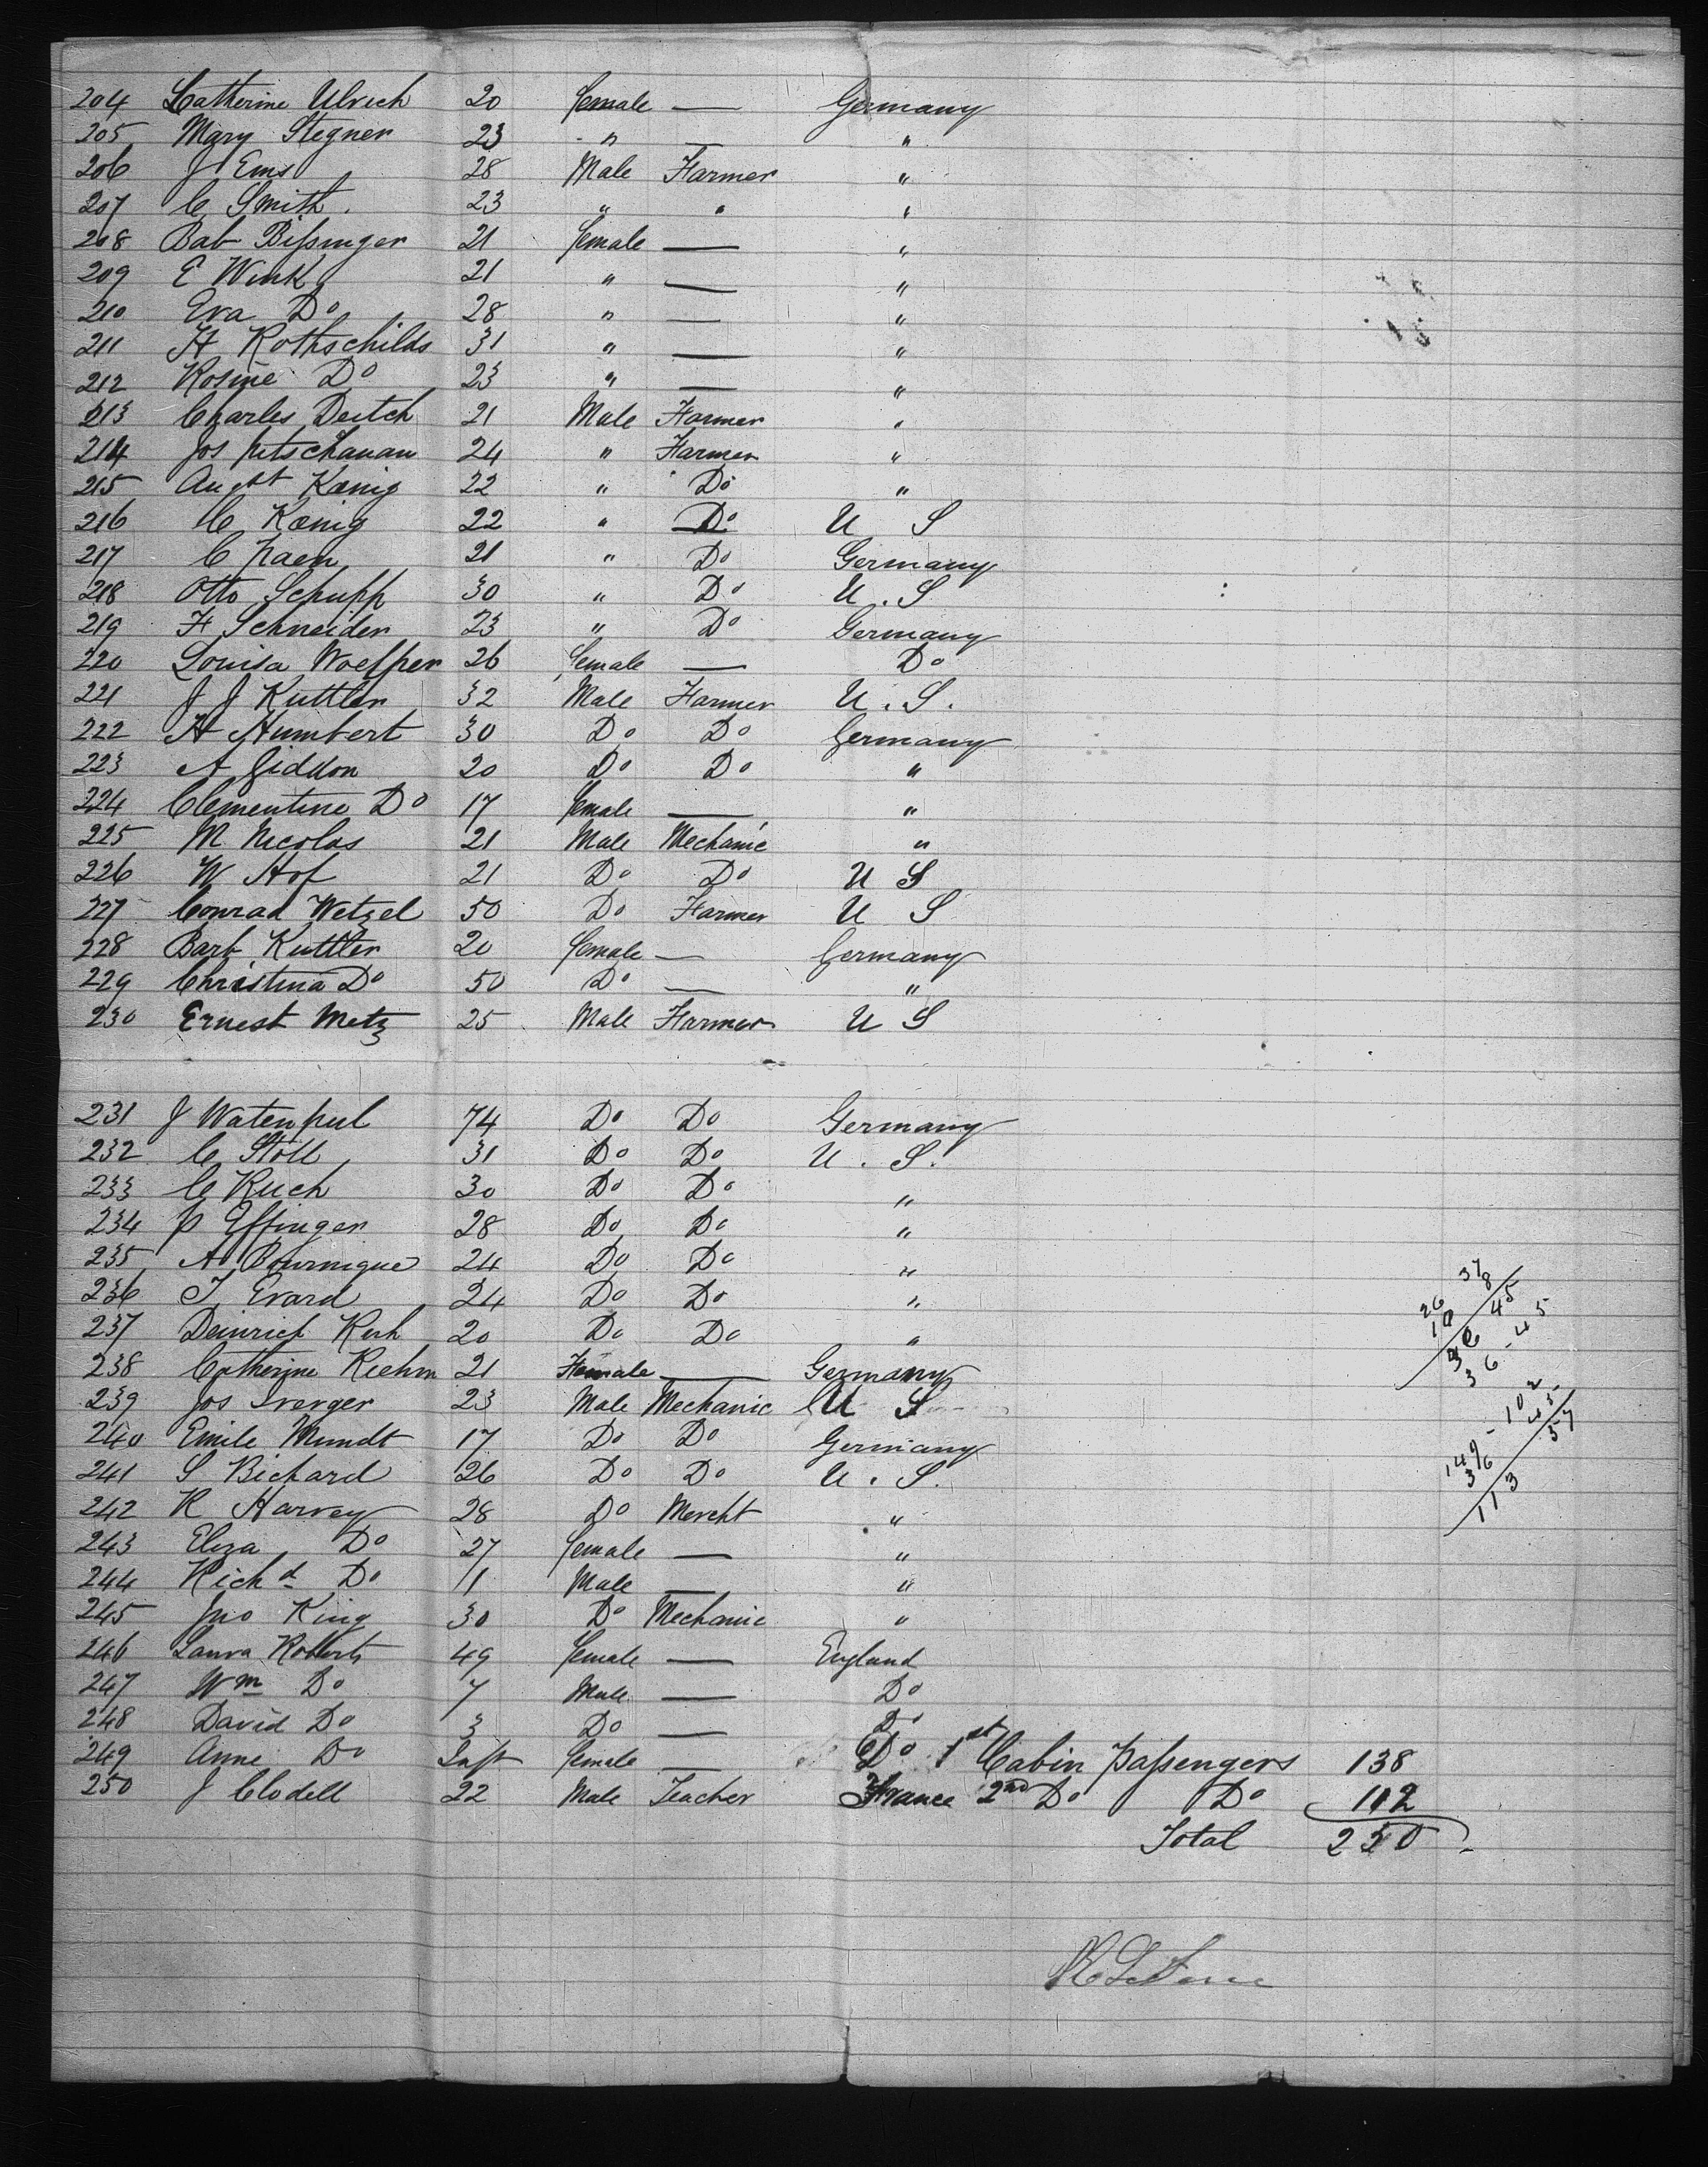 204 Catherine Ulrich 20 female — Germany
205 Mary Stegner 23 " — "
206 J Ems 28 Male Farmer "
207 C Smith. 23 " " "
208 Bab Bissinger 21 female — "
209 E Wink 21 " — "
210 Eva Do 28 " — "
211 H Rothschilds 31 " — "
212 Rosine Do 23 " — "
213 Charles Deitch 21 Male Farmer "
214 Jos 24 " Farmer "
215 Augst Kœnig 22 " Do "
216 C Kœnig 22 " Do U S
217 C 21 " Do Germany
218 Otto Schupp 30 " Do U. S
219 F Schneider 23 " Do Germany
220 Louisa Woelper 26 female — Do
221 J J Kuttler 32 Male Farmer U. S.
222 H Humbert 30 Do Do Germany
223 A Giddon 20 Do Do "
224 Clementine Do 17 female — "
225 M Nicolas 21 Male Mechanic "
226 W Hof 21 Do Do U S
227 Conrad Wetzel 50 Do Farmer U S
228 Barb Kuttler 20 female — Germany
229 Christina Do 50 Do — "
230 Ernest Metz 25 Male Farmer U S
231 J Watenpul 74 Do Do Germany
232 C Stoll 31 Do Do U. S.
233 C Kuch 30 Do Do "
234 P Effinger 28 Do Do "
235 A Bournique 24 Do Do "
236 J Evard 24 Do Do "
237 Deinrich 20 Do Do "
238 Catherine Riehm 21 Female — Germany
239 Jos 23 Male Mechanic U S
240 Emile Mundt 17 Do Do Germany
241 S Bichard 26 Do Do U. S.
242 R Harvey 28 Do Mercht "
243 Eliza Do 27 female — "
244 Richd Do 1 Male — "
245 Jno King 30 Do Mechanic "
246 Laura Roberts 49 female — England
247 Wm Do 7 Male — Do
248 David Do 3 Do — Do
249 Anne Do Inft female — Do 1st Cabin Passengers 138
250 J Clodell 22 Male Teacher France 2nd Do Do 112
Total 250
37
26 8
10 45
36
36-45
149-102
36 45
113 57